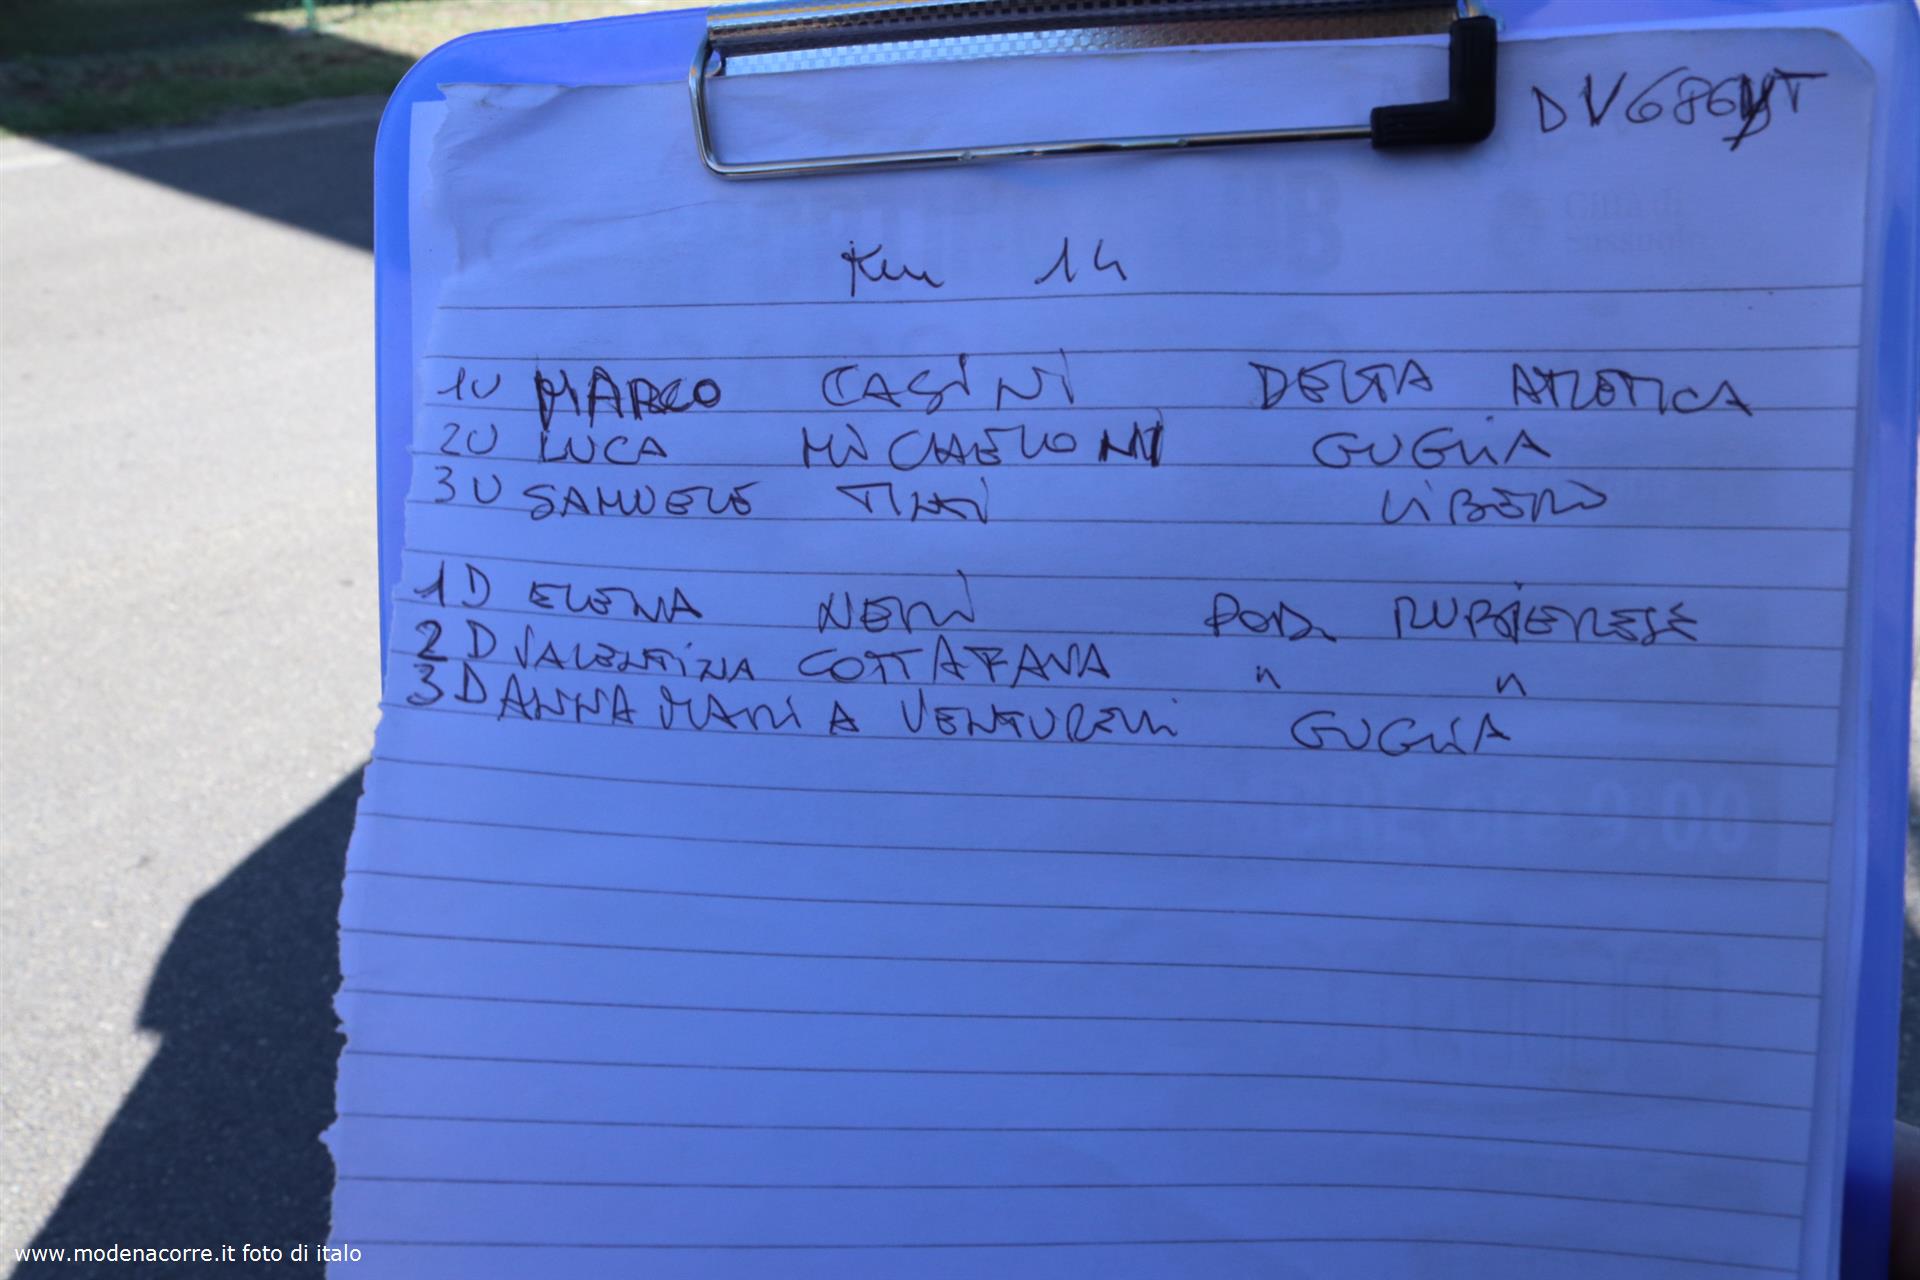 DV686YT
Km 14
1U MARCO CASINI DELTA ATLETICA
2U LUCA MICHELONI GUGLIA
3U SAMUELE LIBERO
1D ELENA NERI POD. RUBIERESE
2D VALENTINA COTTAFAVA " "
3D ANNA MARIA VENTURELLI GUGLIA
Città di
Sassuolo
ore 9.00
www.modenacorre.it foto di italo